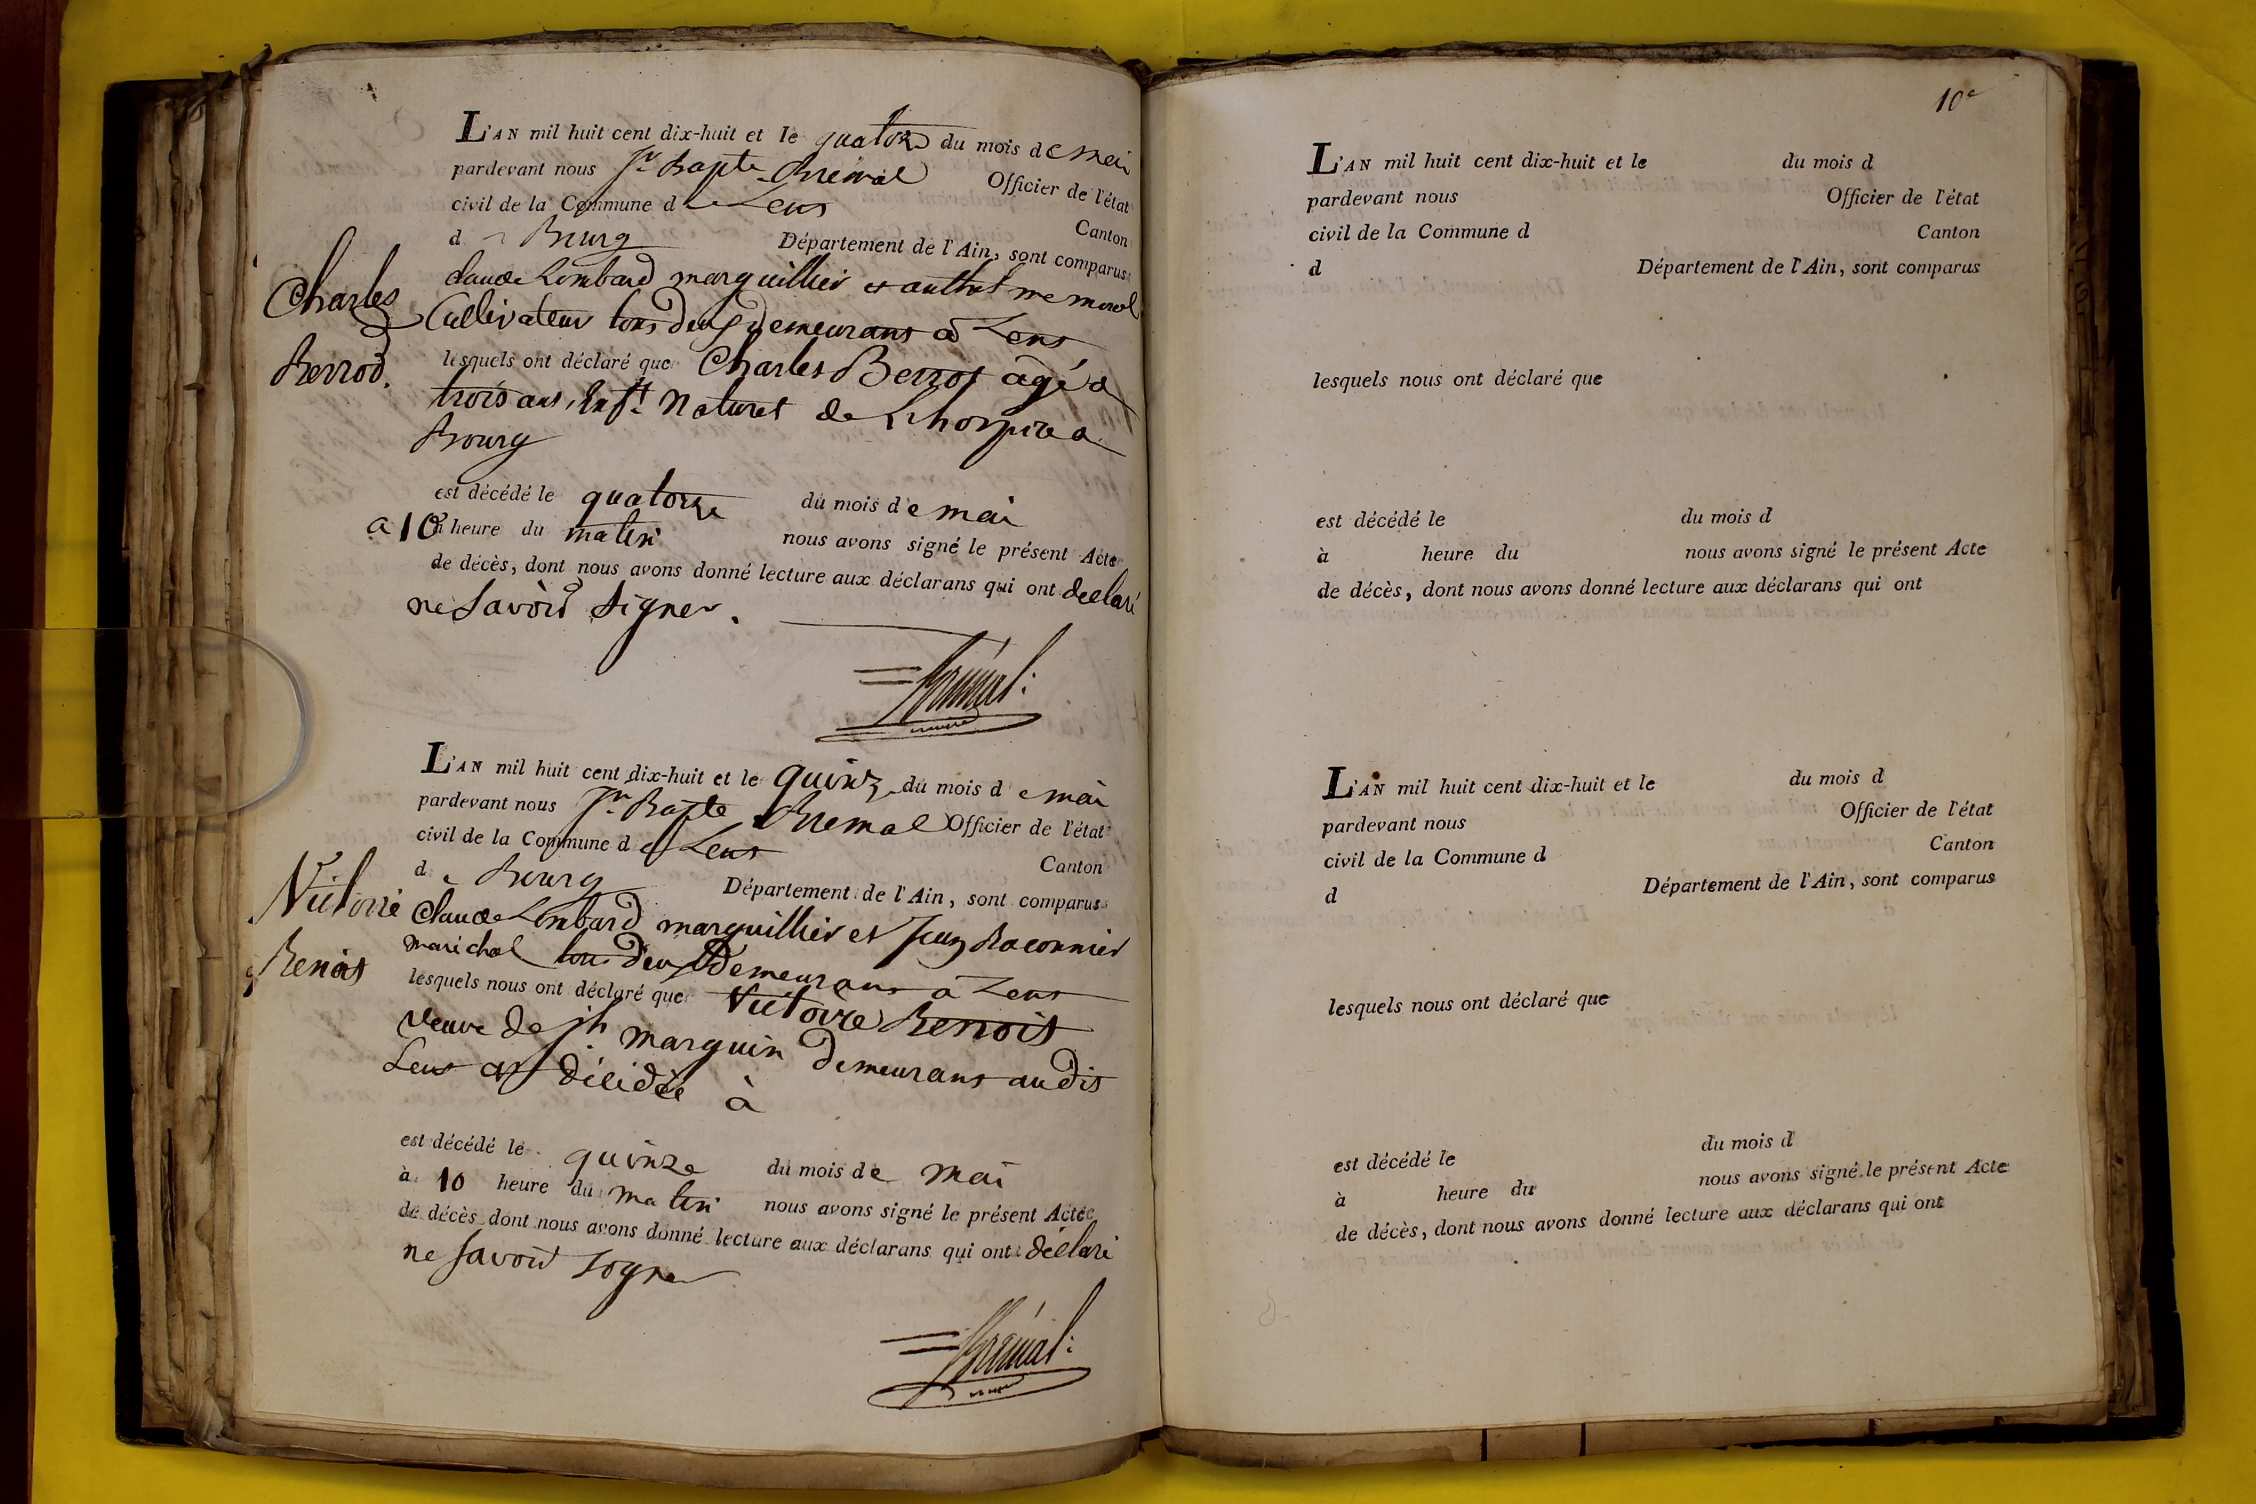 L'AN mil huit cent dix-huit et le quatorze du mois de mai
pardevant nous Jn Bapte Brémal Officier de l'état
civil de la Commune de Lent Canton
de Bourg Département de l'Ain, sont comparus
Claude Lombard marguillier et
Cultivateur tous deux demeurans a Lent
Charles
Berrod.
lesquels ont déclaré que Charles Berrod agé de
trois ans, enft Naturel de Lhospice de
Bourg
est décédé le quatorze du mois de mai
a 10 heure du matin nous avons signé le présent Acte
de décès, dont nous avons donné lecture aux déclarans qui ont déclaré
ne Savoir Signer.
Brémal:
L'AN mil huit cent dix-huit et le quinze du mois de mai
pardevant nous Jn Bapte Bremal Officier de l'état
civil de la Commune de Lent Canton
de Bourg Département de l'Ain, sont comparus
Victoire
Benoit
Claude Lombard marguillier et Jean Raconnier
marichal tous deux demeurans a Lent
lesquels nous ont déclaré que Victoire Benoit
veuve de jh. marguin demeurans audit
Lent décidée à
est décédé le quinze du mois de mai
à 10 heure du matin nous avons signé le présent Acte
de décès dont nous avons donné lecture aux déclarans qui ont déclaré
ne savoir signer
Brémal:
10e
L'AN mil huit cent dix-huit et le du mois d
pardevant nous Officier de l'état
civil de la Commune d Canton
d Département de l'Ain, sont comparus
lesquels nous ont déclaré que
est décédé le du mois d
à heure du nous avons signé le présent Acte
de décès, dont nous avons donné lecture aux déclarans qui ont
L'AN mil huit cent dix-huit et le du mois d
pardevant nous Officier de l'état
civil de la Commune d Canton
d Département de l'Ain, sont comparus
lesquels nous ont déclaré que
est décédé le du mois d
à heure du nous avons signé le présent Acte
de décès, dont nous avons donné lecture aux déclarans qui ont